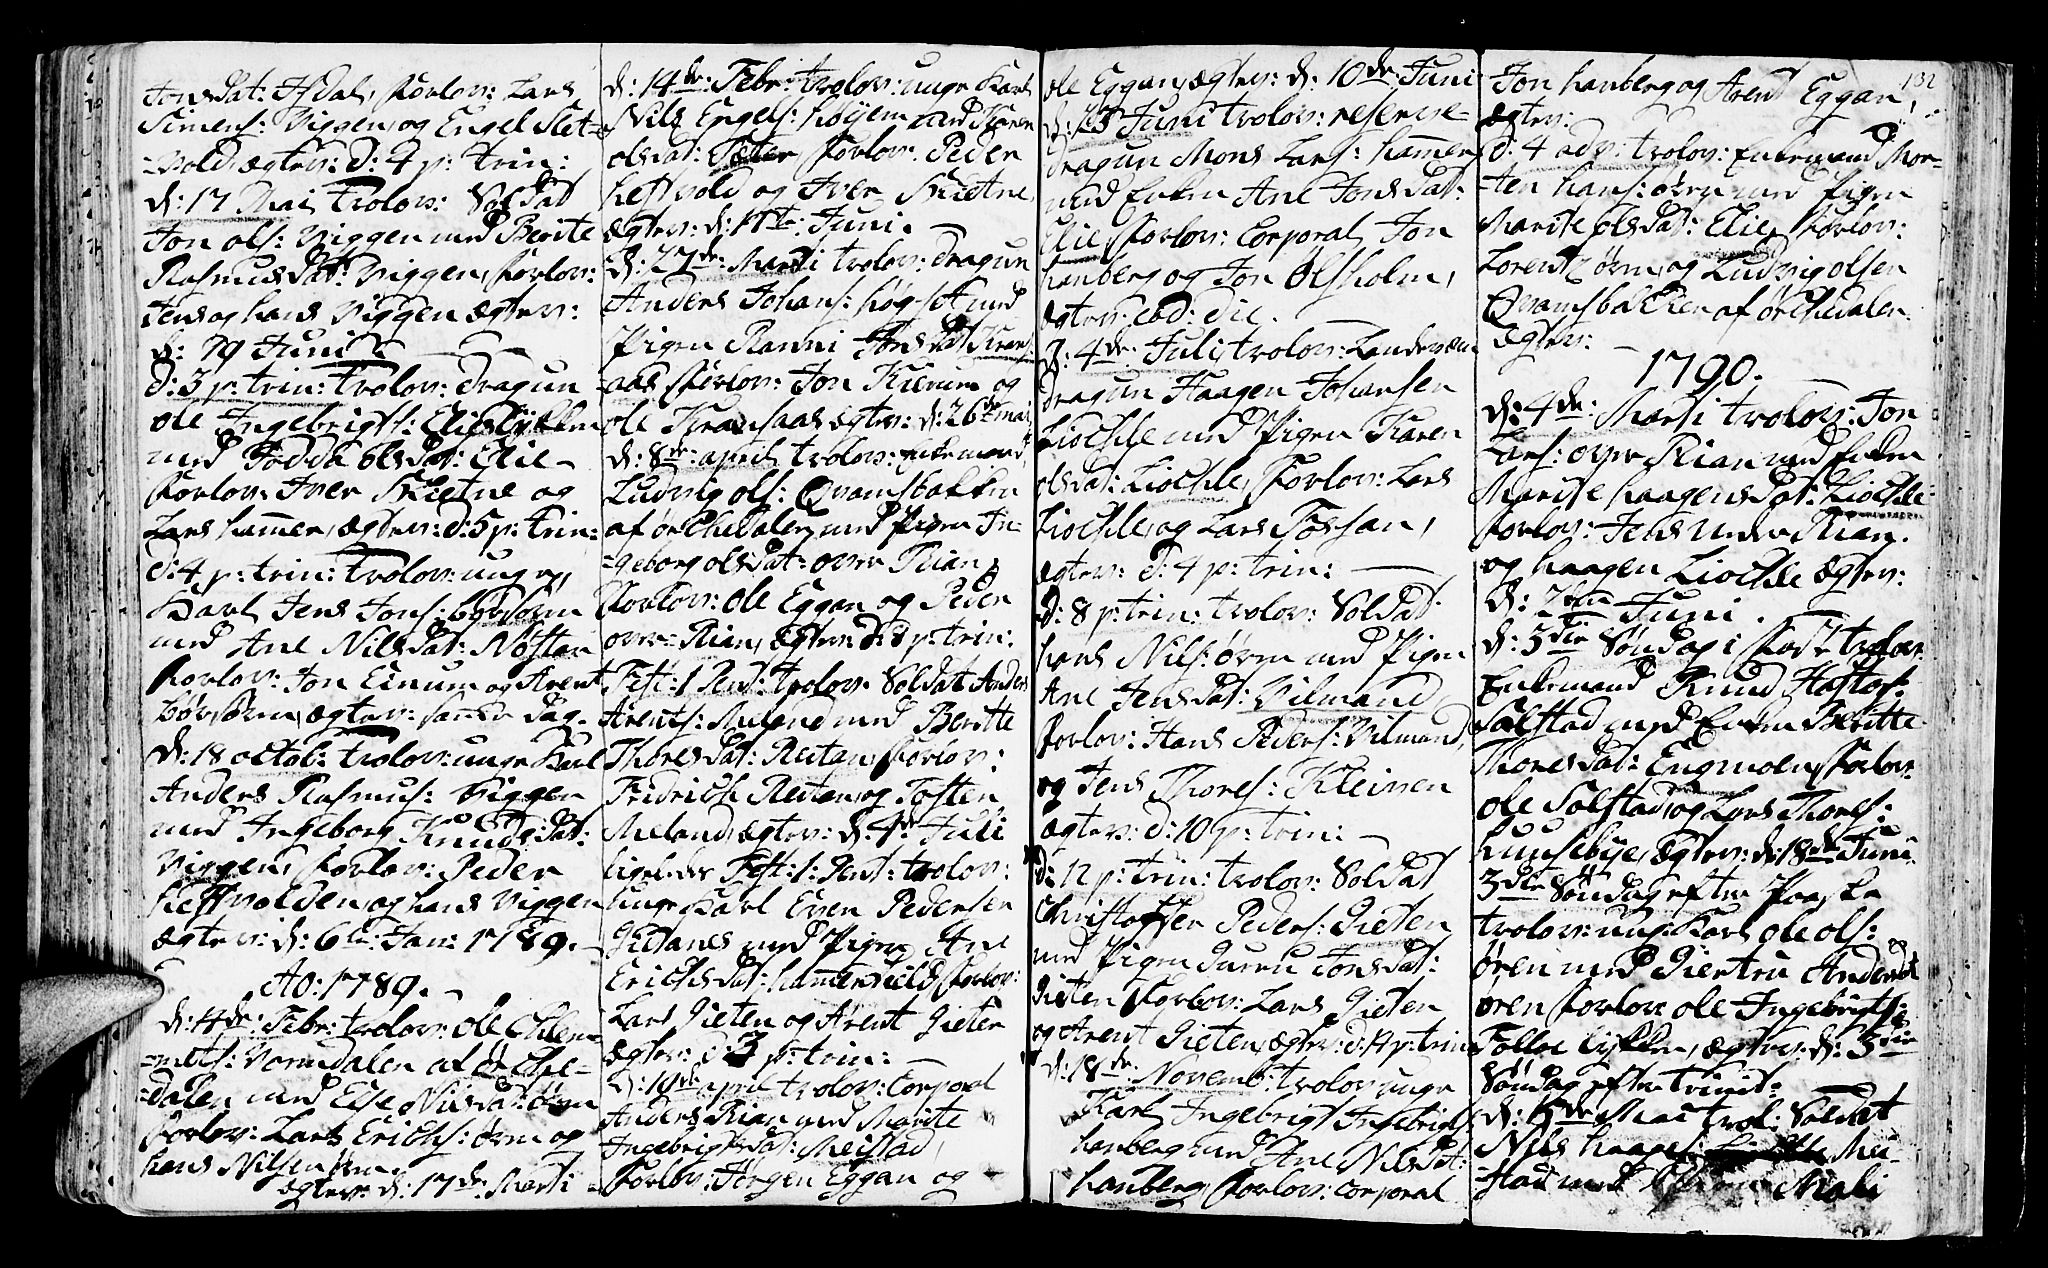 Jonsdat: Isdal, Forlov: Lars
Simens: Viggen, og Engel Slet-
-vold, ægtev: d: 4 p: trin:
d: 17 Mai, trolov: Soldat
Jon ols: Viggen med Berite
Rasmusdat: Viggen, Forlov:
Jens og hans Viggen ægtev:
d: 19 Juni.
d: 3 p: trin: trolov: dragun
ole Ingebrigts: Elieslykken
med olsdat: Elie-
Forlov: Iver Skietne og
Lars hammer, ægtev: d: 5 p: trin:
d: 4 p: trin: trolov: unge
Karl Jens Jons: børsøren
med Ane Nilsdat: Nøstan
Forlov: Jon Einum og Arent
børsøren, ægtev: samme dag.
d: 18 octob: trolov: unge Karl
Anders Rasmus: Viggen
med Ingeborg Knudsdat:
Viggen, Forlov: Peder
heftvolden og hans Viggen
ægtev: d: 6te Jan: 1789.
Ao: 1789.
d: 4de: Febr: trolov: ole Clem-
-mets: Vormdalen af orche-
-dalen med Else Nilsdat: øren
Forlov: Lars Erichs: øren og
hans Nilsen øren
ægtev: d: 17de: Marti
d: 14de: Febr: trolov: unge Karl
Nils Engels: høiem med Karen
olsdat: Sæter, Forlov: Peder
heftvold og Iver Skietne,
ægtev: d: 17te: Juni.
d: 27de: Marti trolov: dragun
Anders Johans: høgset med
Pigen Ranni Jonsdat Krans-
-aas Forlov: Jon Kierum og
ole Kransaas ægtev: d: 26de mai
d: 8de: april, trolov: Enkemand
Ludvig ols: Qvamsbakken
af orchedalen, med Pigen In-
-geborg olsdat: over Rian,
Forlov: ole Eggan og Peder
over-Rian, ægtev: d: 8 p: trin:
Fest: 1 Pent: trolov: Soldat Anders
Arents: Meland med Beritte
Thoresdat: Reitan, Forlov:
Fridrich Reitan, og Tosten
Meland, ægtev: d: 4de Juli
ligeledes Fest: 1: Pent: trolov:
unge Karl Even Pedersen
Gietanes med Pigen Ane
Erichsdat: hammerfield Forlov:
Lars Gieten og Arent Gieten
ægtev: d: 3 p: trin:
d: 19de april trolov: Corporal
Anders Rian med Marite
Ingebrigtsdat: Meistad,
Forlov: Jørgen Eggan og
ole Eggan, ægtev: d: 10de: Juni
d: 13 Juni trolov: reserve-
dragun Mons Lars: hammer
med Enken Ane Jonsdat:
Elie, Forlov: Corporal, Jon
hanberg og Jon Ølsholm,
ægtev: eod: die.
d: 4de: Juli, trolov: Landeværn
dragun Haagen Johansen
Liochle med Pigen Karen
olsdat: Liochle, Forlov: Lars
Liochle, og Lars Fossan,
ægtev: d: 4 p: trin:
d: 8 p: trin: trolov: Soldat
hans Nils: øren med Pigen
Ane Jensdat: Vilmand
Forlov: Hans Peders: Vilmand,
og Jens Thores: Kleinen
ægtev: d: 10 p: trin:
d: 12 p: trin: trolov: Soldat
Christoffer Peders: Gieten
med Pigen Guru Jonsdat:
Gieten Forlov: Lars Gieten
og Arent Gieten, ægtev: d: 14 p: trin
d: 18de: Novemb: trolov unge
Karl, Ingebrigt Ingebrigts
hanberg med Ane Nilsdat:
hanberg, Forlov: Corporal
132
Jon hanberg og Arent Eggan,
ægtev:
d: 4 adv: trolov: Enkemand Mor-
-ten hans: øren med Pigen
Marite olsdat: Elie, Forlov:
Lorentz øren, og Ludvig olsen
Qvamsbakken af orchedalen.
ægtev:
1790.
d: 4de: Marti trolov: Jon
Lars: over Rian med Enken
Marite haagensdat: Liochle
Forlov: Jens under Rian.
og haagen Liochle ægtev:
d: 2den Juni.
d: 3die Søndag i Faste trolov:
Enkemand Knud
Solstad med Enken Beritte
Thoresdat: Engmoen, Forlov:
ole Solstad, og Lars Thores:
huusebye, ægtev: d: 18de Juni.
3die Søndag efter Paaske
trolov: ung Karl ole ols:
øren med Giertru Andersd
øren Forlov: ole Ingebrigts:
Follolykken, ægtev: d: 3die
Søndag efter trinit:
d: 13de Mai trol: Soldat
Nils haagens: Mei-
-stad med Pigen Mali